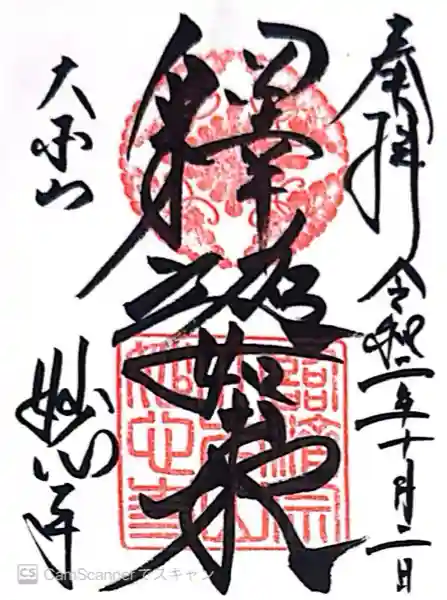 奉拝
令和二年十月二日
釋迦如来
大本山
妙心寺
CS CamScannerでスキャン